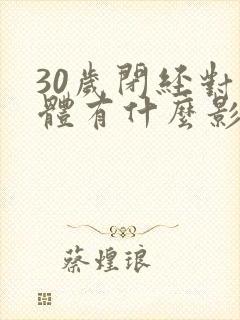 30歲閉經對
體有什麼影
蔡煌琅